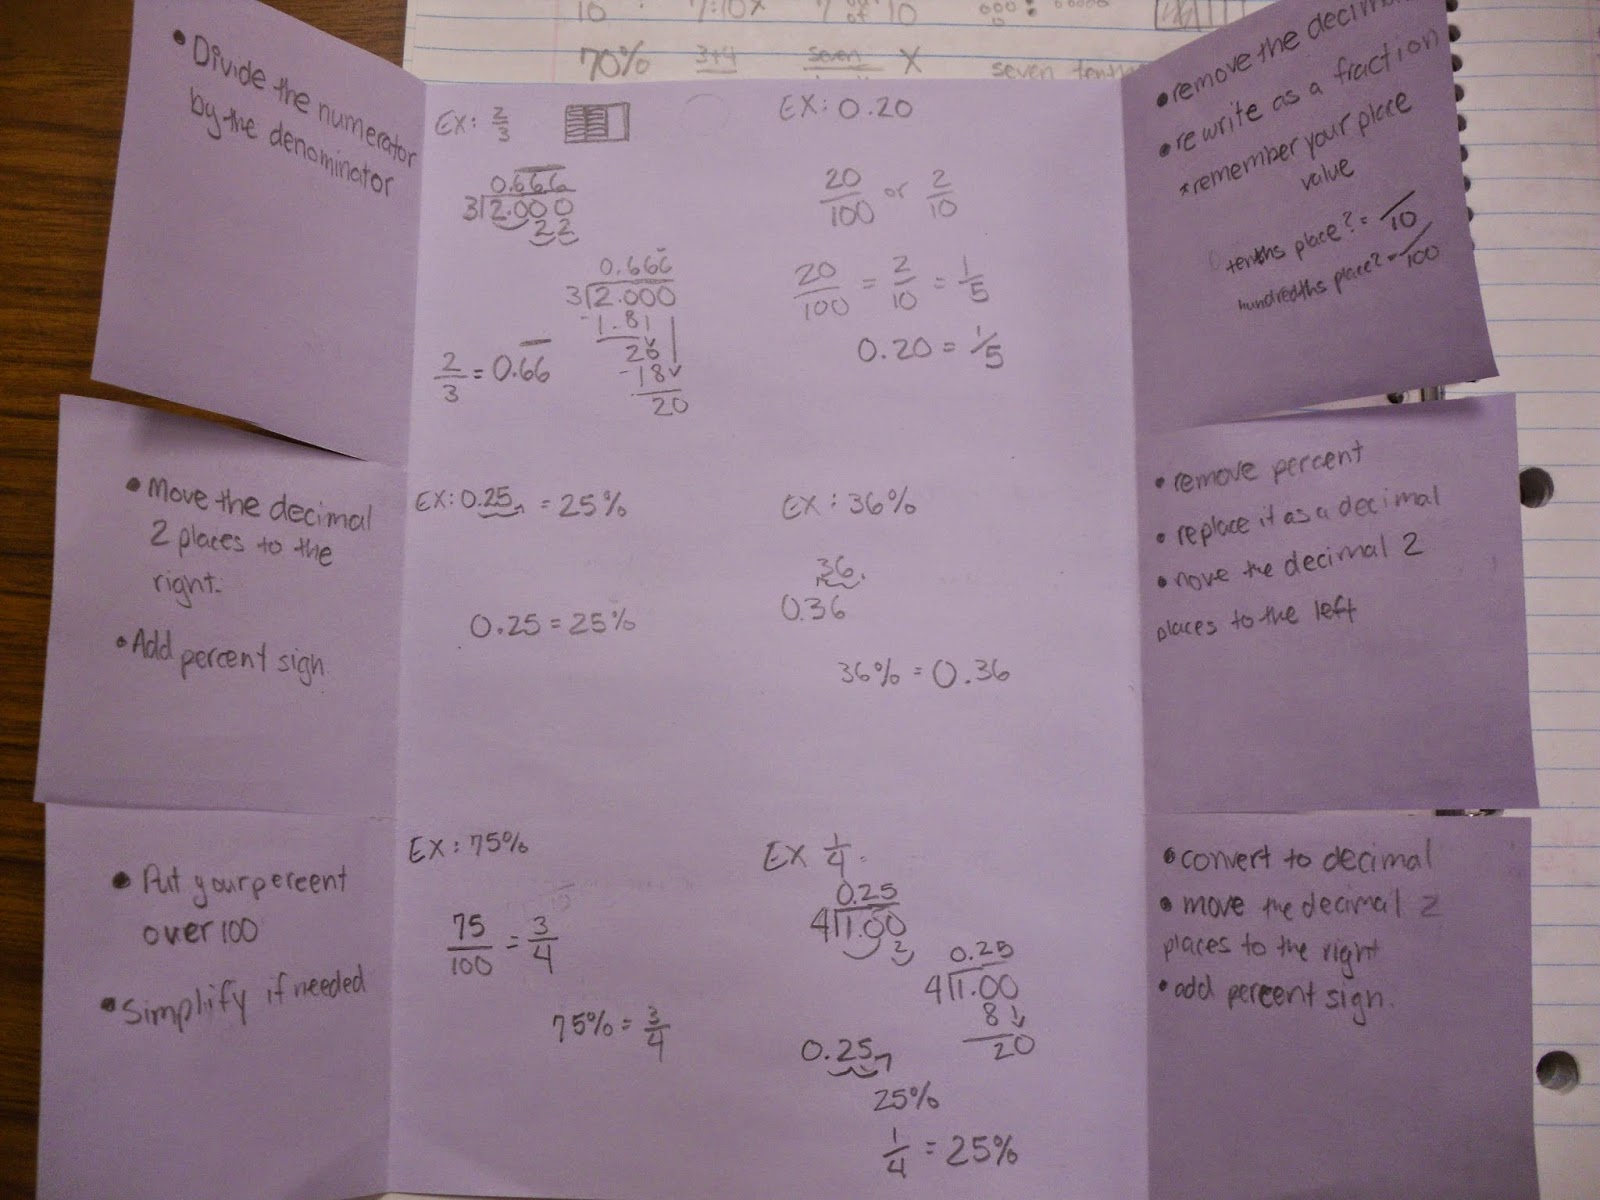 10 7:10 7 out of 10
70% 3+4 seven X seven tenths
• Divide the numerator
by the denominator
EX: 2/3
0.666
3 2.000
22
0.666
3 2.000
-1.81
20
-18
20
2/3 = 0.66
EX: 0.20
20/100 or 2/10
20/100 = 2/10 = 1/5
0.20 = 1/5
• remove the decimal
• rewrite as a fraction
*remember your place
value
tenths place? = /10
hundredths place? = /100
• Move the decimal
2 places to the
right.
• Add percent sign
EX: 0.25 = 25%
0.25 = 25%
EX: 36%
36.
0.36
36% = 0.36
• remove percent
• replace it as a decimal
• move the decimal 2
places to the left
• Put your percent
over 100
• Simplify if needed
EX: 75%
75/100 = 3/4
75% = 3/4
EX 1/4
0.25
4 1.00
2
0.25
4 1.00
8
20
0.25
25%
1/4 = 25%
• convert to decimal
• move the decimal 2
places to the right
• add percent sign.